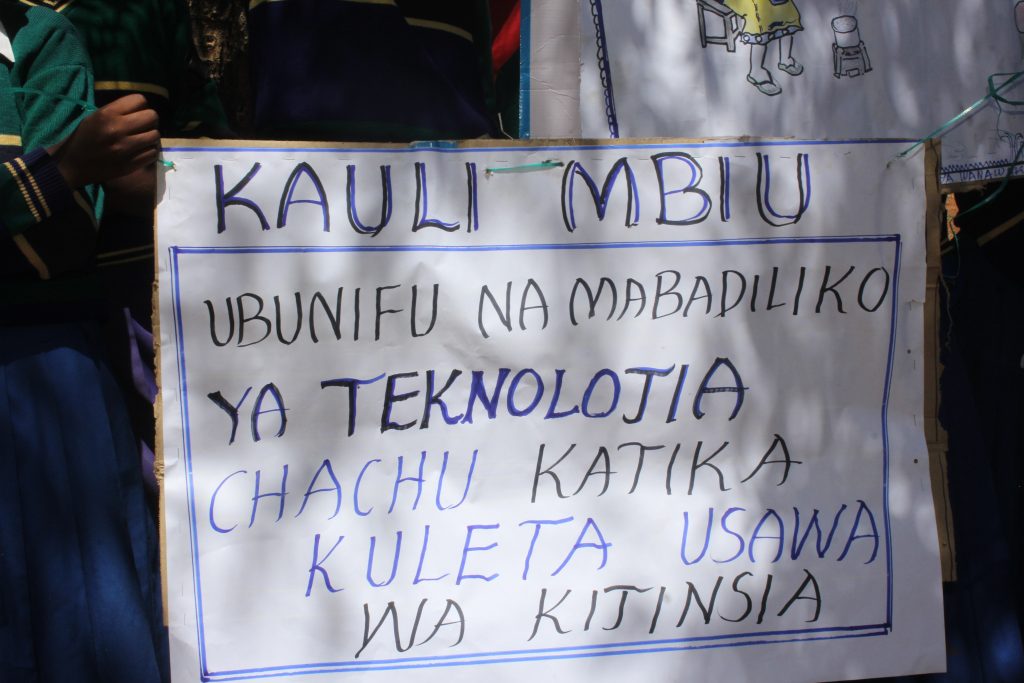 KAULI MBIU
UBUNIFU NA MABADILIKO
YA TEKNOLOJIA
CHACHU KATIKA
KULETA USAWA
WA KIJINSIA